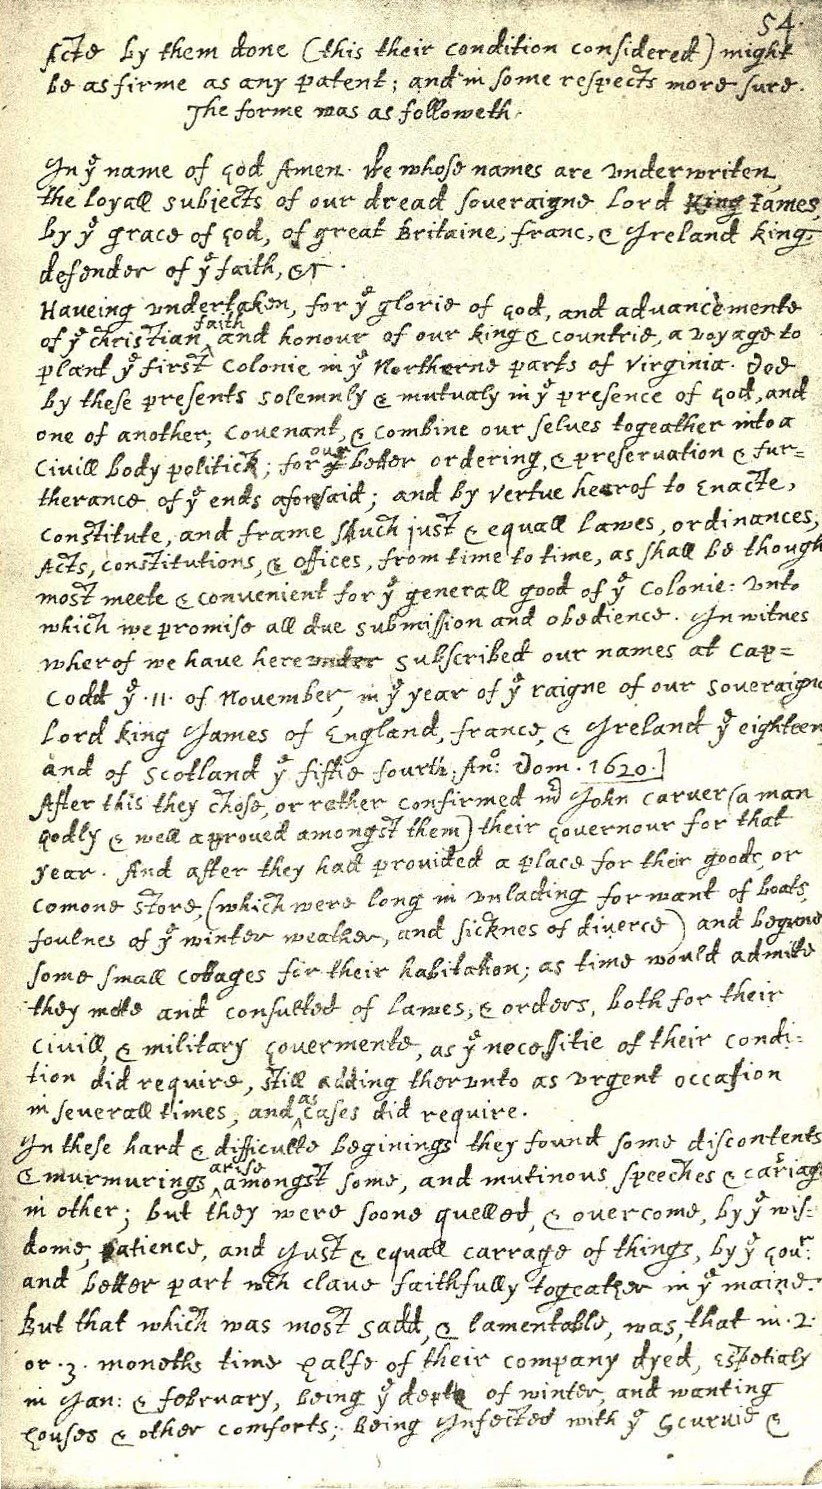 54.
Acts by them done (this their condition considered) might
be as firme as any patent; and in some respects more sure.
The forme was as followeth.
In yͤ name of god Amen. We whose names are vnderwriten,
the loyall subjects of our dread soveraigne Lord King James,
by yͤ grace of god, of great Britaine, franc, & Ireland king,
defender of yͤ faith, &c.
Haveing vndertaken, for yͤ glorie of god, and advancemente
of yͤ christian faith and honour of our king & countrie, a voyage to
plant yͤ first colonie in yͤ Northerne parts of Virginia. Doe
by these presents solemnly & mutualy in yͤ presence of god, and
one of another, covenant, & combine our selves togeather into a
civill body politick; for our better ordering, & preservation & fur=
therance of yͤ ends aforesaid; and by vertue hearof to Enacte,
constitute, and frame such just & equall lawes, ordinances,
Acts, constitutions, & offices, from time to time, as shall be though
most meete & convenient for yͤ generall good of yͤ colonie: vnto
which we promise all due submission and obedience. In witnes
wherof we have hereunder subscribed our names at Cap=
Codd yͤ .11. of November, in yͤ year of yͤ raigne of our soveraigne
Lord king James of England, france, & Ireland yͤ eighteen
and of Scotland yͤ fiftie fourth. Anº: Dom. 1620.]
After this they chose, or rather confirmed mʳ John Carver (a man
godly & well approved amongst them) their governour for that
year. And after they had provided a place for their goods, or
comone store, (which were long in vnlading for want of boats,
foulnes of yͤ winter weather, and sicknes of diverce) and begune
some small cottages for their habitation; as time would admitte
they mette and consulted of lawes, & orders, both for their
civill, & military govermente, as yͤ necessitie of their condi=
tion did require, still adding thervnto as vrgent occasion
in severall times, and as cases did require.
In these hard & difficulte beginings they found some discontents
& murmurings arise amongst some, and mutinous speeches & cariags
in other; but they were soone quelled, & overcome, by yͤ wis=
dome, patience, and just & equall carrage of things, by yͤ govʳ:
and better part wch clave faithfully togeather in yͤ maine.
But that which was most sadd, & lamentable, was, that in .2.
or .3. moneths time halfe of their company dyed, espetialy
in Jan: & february, being yͤ depth of winter, and wanting
houses & other comforts; being Infected with yͤ Scurvie &